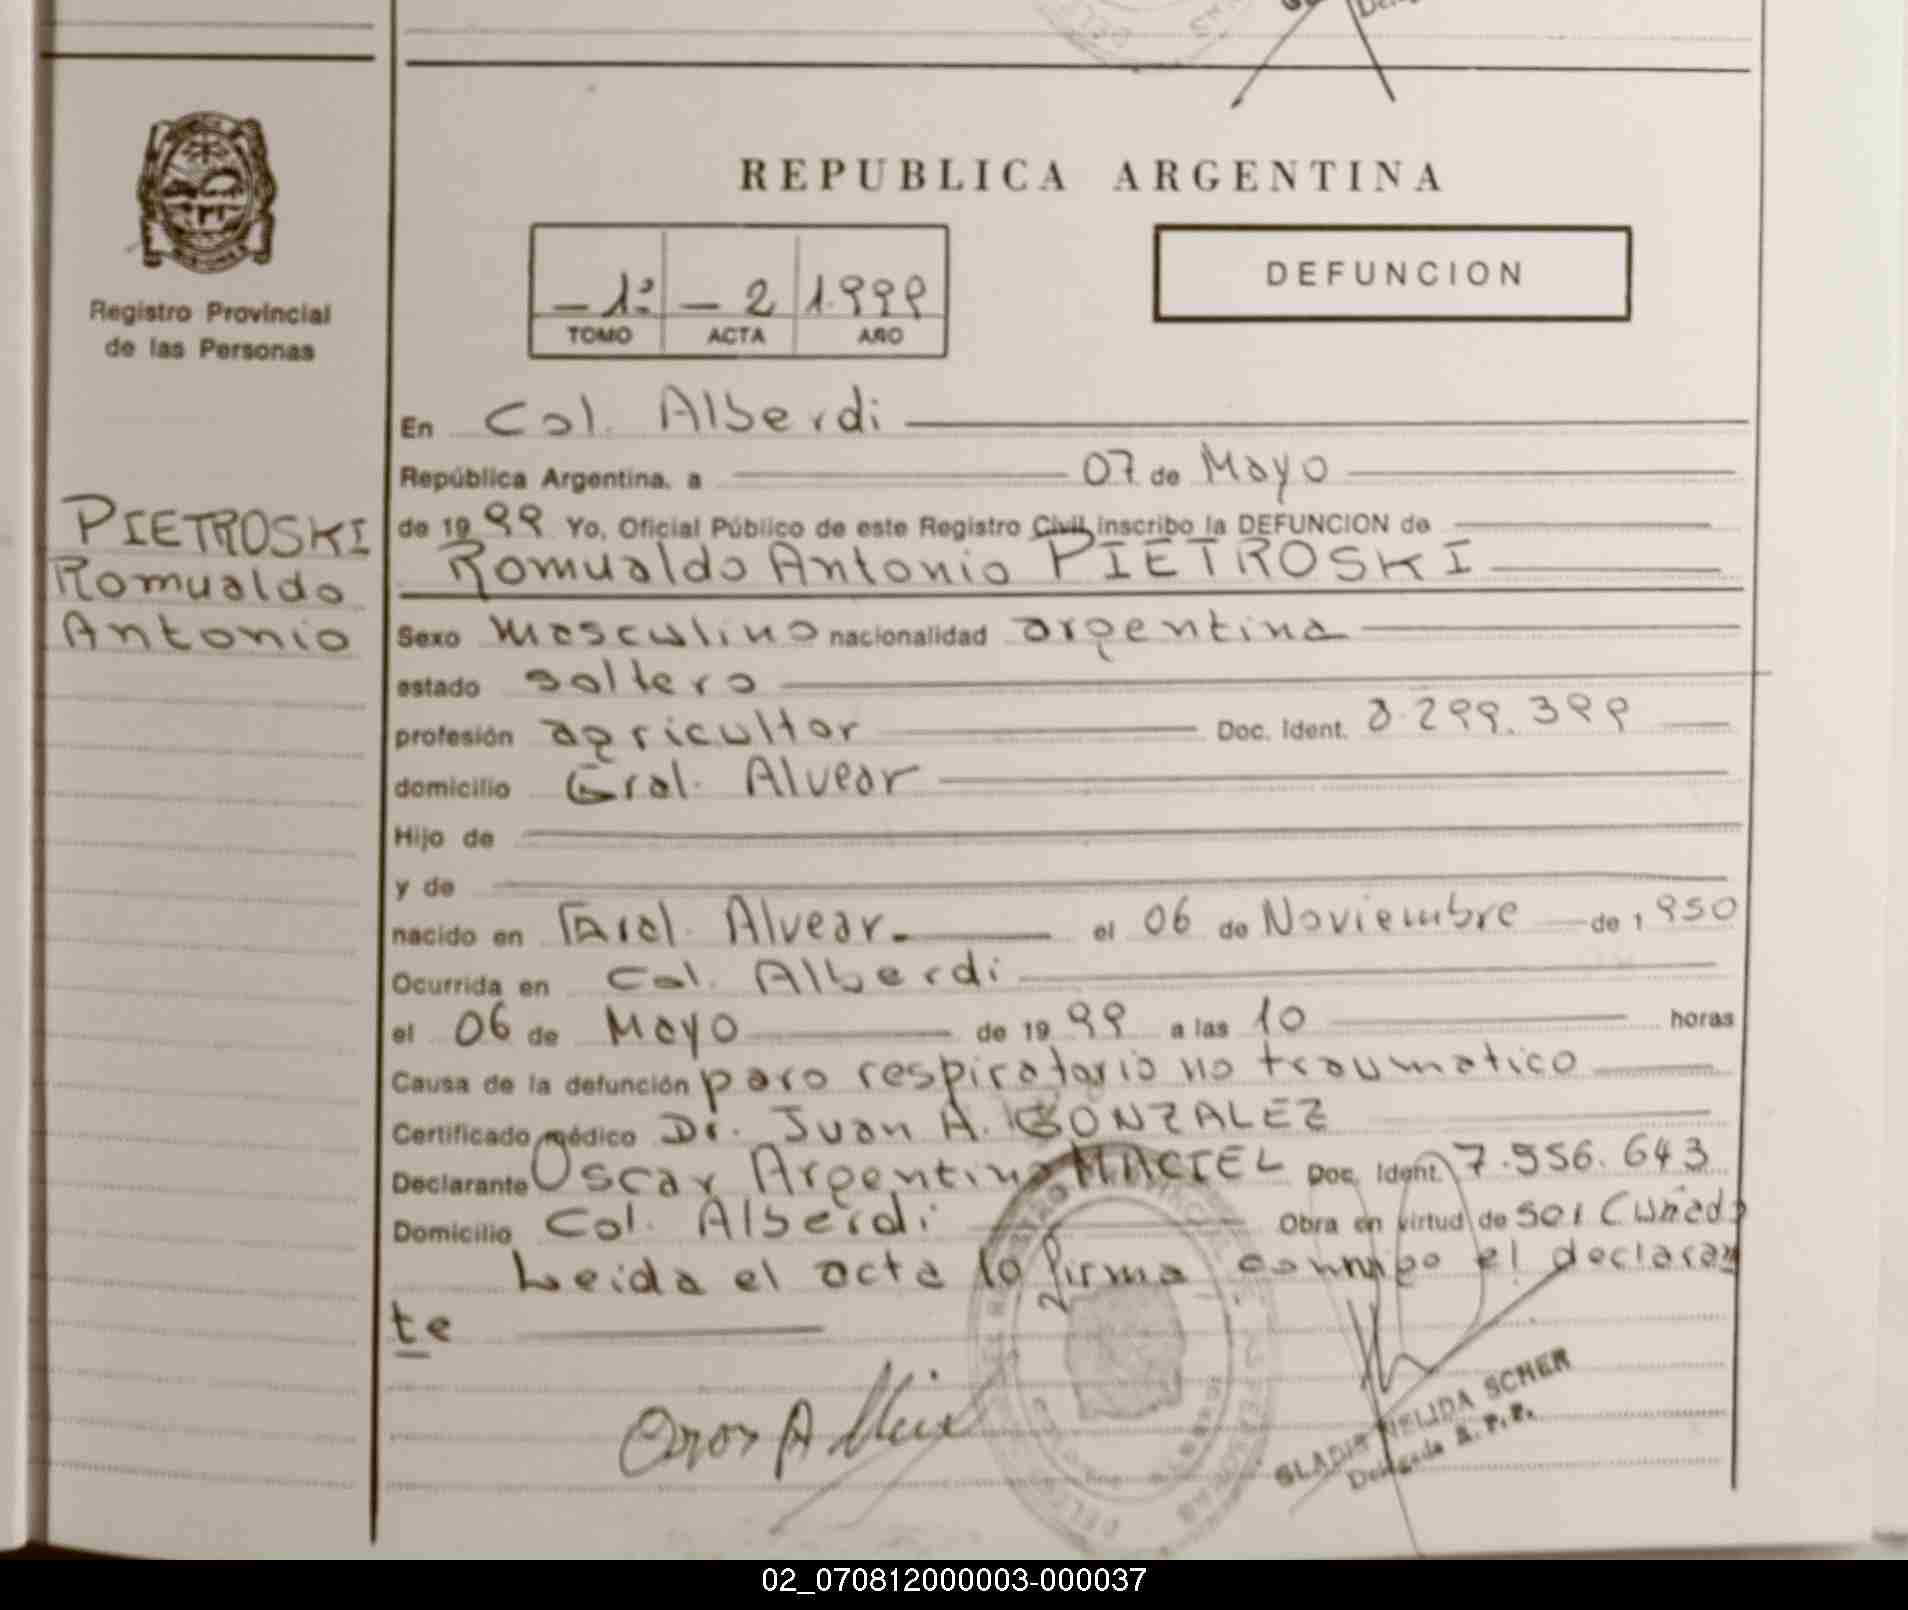 REPUBLICA ARGENTINA
DEFUNCION
— 1º — 2 1.999
TOMO ACTA AÑO
Registro Provincial
de las Personas
PIETROSKI
Romualdo
Antonio
En Col. Alberdi
República Argentina, a 07 de Mayo
de 1999 Yo, Oficial Público de este Registro Civil inscribo la DEFUNCION de
Romualdo Antonio PIETROSKI
Sexo masculino nacionalidad argentina
estado soltero
profesión agricultor Doc. Ident. 8.299.399
domicilio Gral. Alvear
Hijo de
y de
nacido en Gral. Alvear. el 06 de Noviembre de 1950
Ocurrida en Col. Alberdi
el 06 de Mayo de 1999 a las 10 horas
Causa de la defunción paro respiratorio no traumatico
Certificado médico Dr. Juan A. GONZALEZ
Declarante Oscar Argentino MACIEL Doc. Ident. 7.556.643
Domicilio Col. Alberdi Obra en virtud de ser Cuñado
Leida el acta la firma conmigo el declaran
te
GLADIS NELIDA SCHER
Delegada R. P. P.
02_070812000003-000037